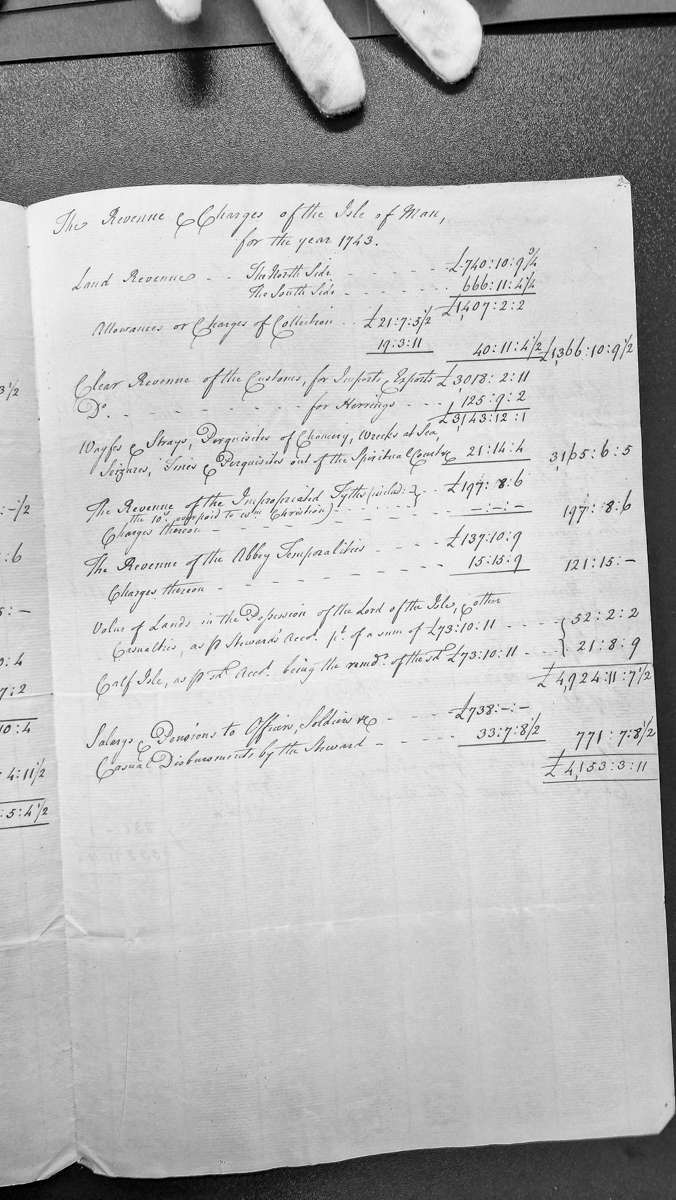 2.
The Revenue & Charges of the Isle of Man,
for the year 1743.
Land Revenue - - The North Side - - - - - £740:10:9 3/4
The South Side - - - - - 666:11:4 1/4
£1,407:2:2
Allowances or Charges of Collection - - £21:7:5 1/2
19:3:11 40:11:4 1/2 £1,366:10:9 1/2
Clear Revenue of the Customs, for Imports & Exports £3018:2:11
Do. - - - - - - - for Herrings - - - 125:9:2
£3,143:12:1
Wayfs & Strays, Perquisites of Chancery, Wrecks at Sea,
Seizures, Fines & Perquisites out of the Spiritual Courts 21:14:4 3,165:6:5
The Revenue of the Impropriated Tythes (includ: } - - £197:8:6
the 10s. overpaid to Wm. Christian) - - - - - -
Charges thereon - - - - - - - - - -:-:- 197:8:6
The Revenue of the Abbey Temporalities - - - - £137:10:9
Charges thereon - - - - - - - - - - 15:15:9 121:15:-
Value of Lands in the Possession of the Lord of the Isle, & other
Casualties, as p Stewards Accot. pt. of a sum of £73:10:11 - - - - { 52:2:2
Calf Isle, as p sd. Accot. being the remdr. of the sd. £73:10:11 - - - 21:8:9
£4,924:11:7 1/2
Salarys & Pensions to Officers, Soldiers &c - - - - £738:-:-
Casual Disbursments by the Steward - - - - - 33:7:8 1/2 771:7:8 1/2
£4,153:3:11
3 1/2
:-1/2
:6
5:-
0:4
7:2
10:4
4:11 1/2
:5:4 1/2